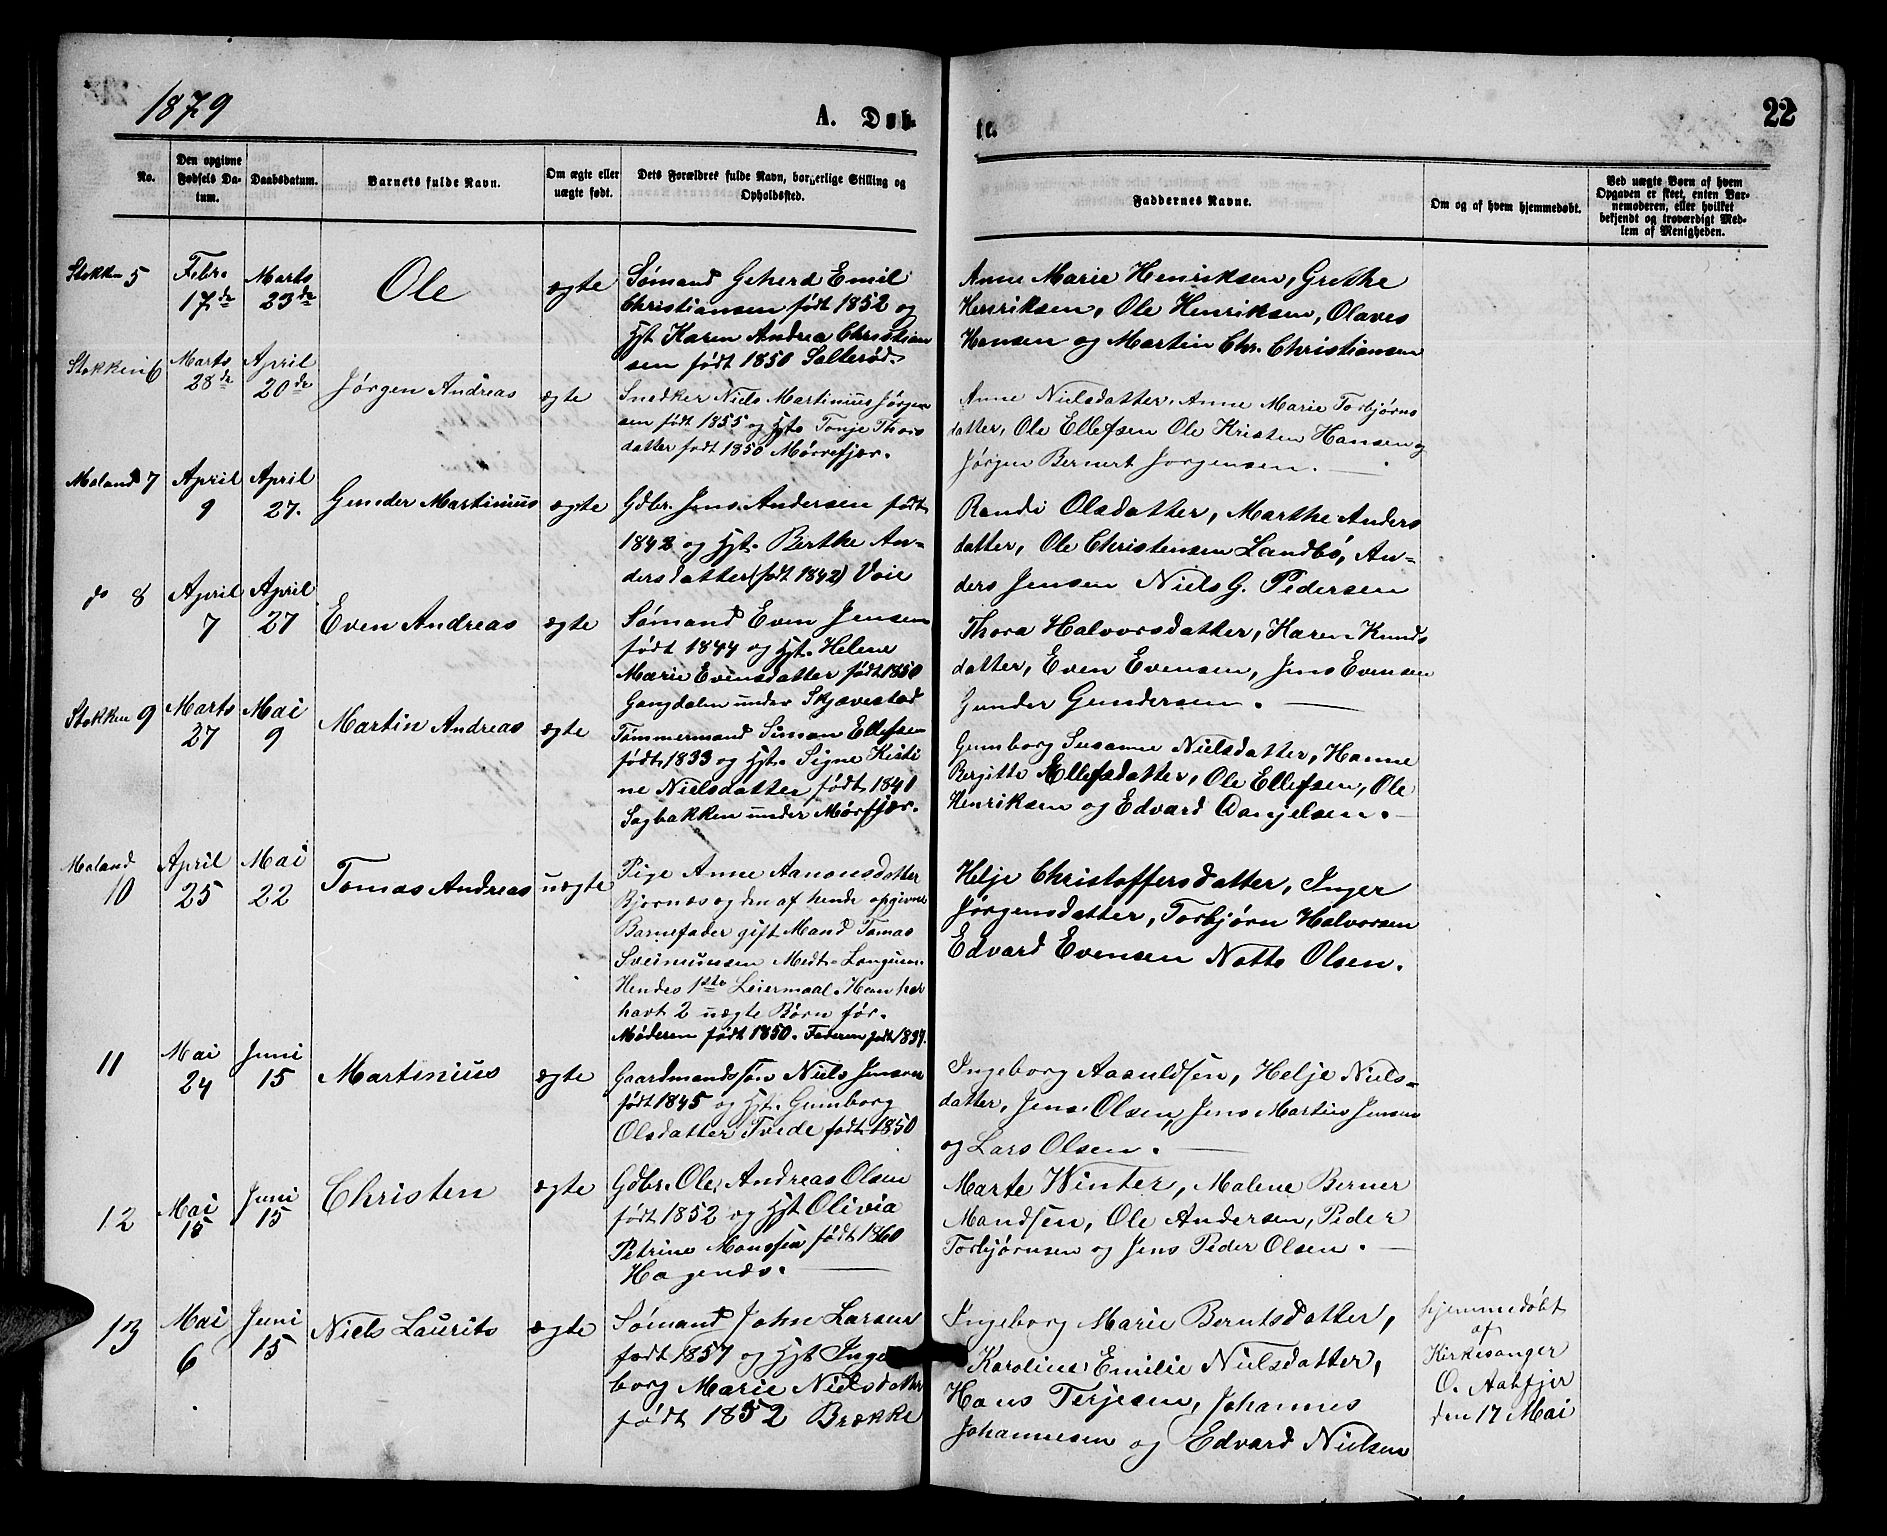 1879
A. Døb-
te.
22
No.
Den opgivne Fødsels Da-tum.
Daabsdatum.
Barnets fulde Navn.
Om ægte eller uægte født.
Dets Forældres fulde Navn, borgerlige Stilling og Opholdssted.
Faddernes Navne.
Om og af hvem hjemmedøbt.
Ved uægte Børn af hvem Opgaven er skeet, enten Bar-nemoderen, eller hvilket bekjendt og troværdigt Med-lem af Menigheden.
Stokken 5
Febr. 17de
Marts 23de
Ole
ægte
Sømand Geherd Emil
Christiansen født 1852 og
Hst Karen Andrea Christian
sen født 1850 Salterød.
Anne Marie Henriksen, Grethe
Henriksen, Ole Henriksen, Olaves
Hansen og Martin Chr. Christiansen
Stokken 6
Marts 28de
April 20de
Jørgen Andreas
ægte
Snedker Niels Martinius Jørgen
sen født 1855 og Hst Tonje Thors
datter født 1850 Mørrefjær.
Anne Nielsdatter, Anne Marie Torbjørns
datter, Ole Ellefsen Ole Kristen Hansen og
Jørgen Bernert Jorgensen.
Moland 7
April 9
April 27.
Gunder Martinius
ægte
Gdbr. Jens Andersen født
1842 og Hst. Berthe An-
dersdatter (født 1842) Voie
Randi Olsdatter, Marthe Anders
datter, Ole Christensen Landbö, An-
ders Jensen Niels G. Pedersen
do 8
April 7
April 27
Even Andreas
ægte
Sømand Even Jensen
født 1844 og Hst. Helene
Marie Evensdatter født 1850
Gangdalen under Skjævestad
Thora Halvorsdatter, Karen Knuds
datter, Even Evensen, Jens Evensen
Gunder Gundersen.
Stokken 9
Marts 27
Mai 9
Martin Andreas
ægte
Tømmermand Simon Ellefsen
født 1833 og Hst. Signe Kisti
ne Nielsdatter født 1840
Sagbakken under Mørfjær.
Gunborg Susanne Nielsdatter, Hanne
Bergitte Ellefsdatter, Ole Ellefsen, Ole
Henriksen og Edvard Danjelsen.
Moland
10
April 25
Mai 22
Tomas Andreas
uægte
Pige Anne Aanonsdatter
Bjornæs og den af hende opgivne
Barnefader gift Mand Tomas
Sveinunsen Medt. Langum.
Hendes 1ste Leiermaal. Han har
havt 2 uægte Børn før.
Moderen født 1850. Faderen født 1837.
Helje Christoffersdatter, Inger
Jørgensdatter, Torbjørn Halvorsen
Edvard Evensen Notto Olsen.
11
Mai 24
Juni 15
Martinius
ægte
Gaardmandssøn Niels Jensen
født 1845 og Hst. Gunborg
Olsdatter Tvede født 1850
Ingeborg Aasuldsen, Helje Niels-
datter, Jens Olsen, Jens Martin Jensen
og Lars Olsen.
12
Mai 15
Juni 15
Christen
ægte
Gdbr. Ole Andreas Olsen
født 1852 og Hst Olivia
Petrine Monssen født 1860
Hagenæs.
Marte Winter, Malene Berner
Mandsen, Ole Andersen, Peder
Torbjørnsen og Jens Peder Olsen.
13
Mai 6
Juni 15
Niels Laurits
ægte
Sømand John Larsen
født 1857 og Hst Inge
borg Marie Nielsdatter
født 1852 Brække
Ingeborg Marie Berntsdatter,
Karolius Emilie Nielsdatter,
Hans Terjesen, Johannes
Johannesen og Edvard Nielsen
hjemmedøbt
af
Kirkesanger
O. Aabfjer
den 17 Mai